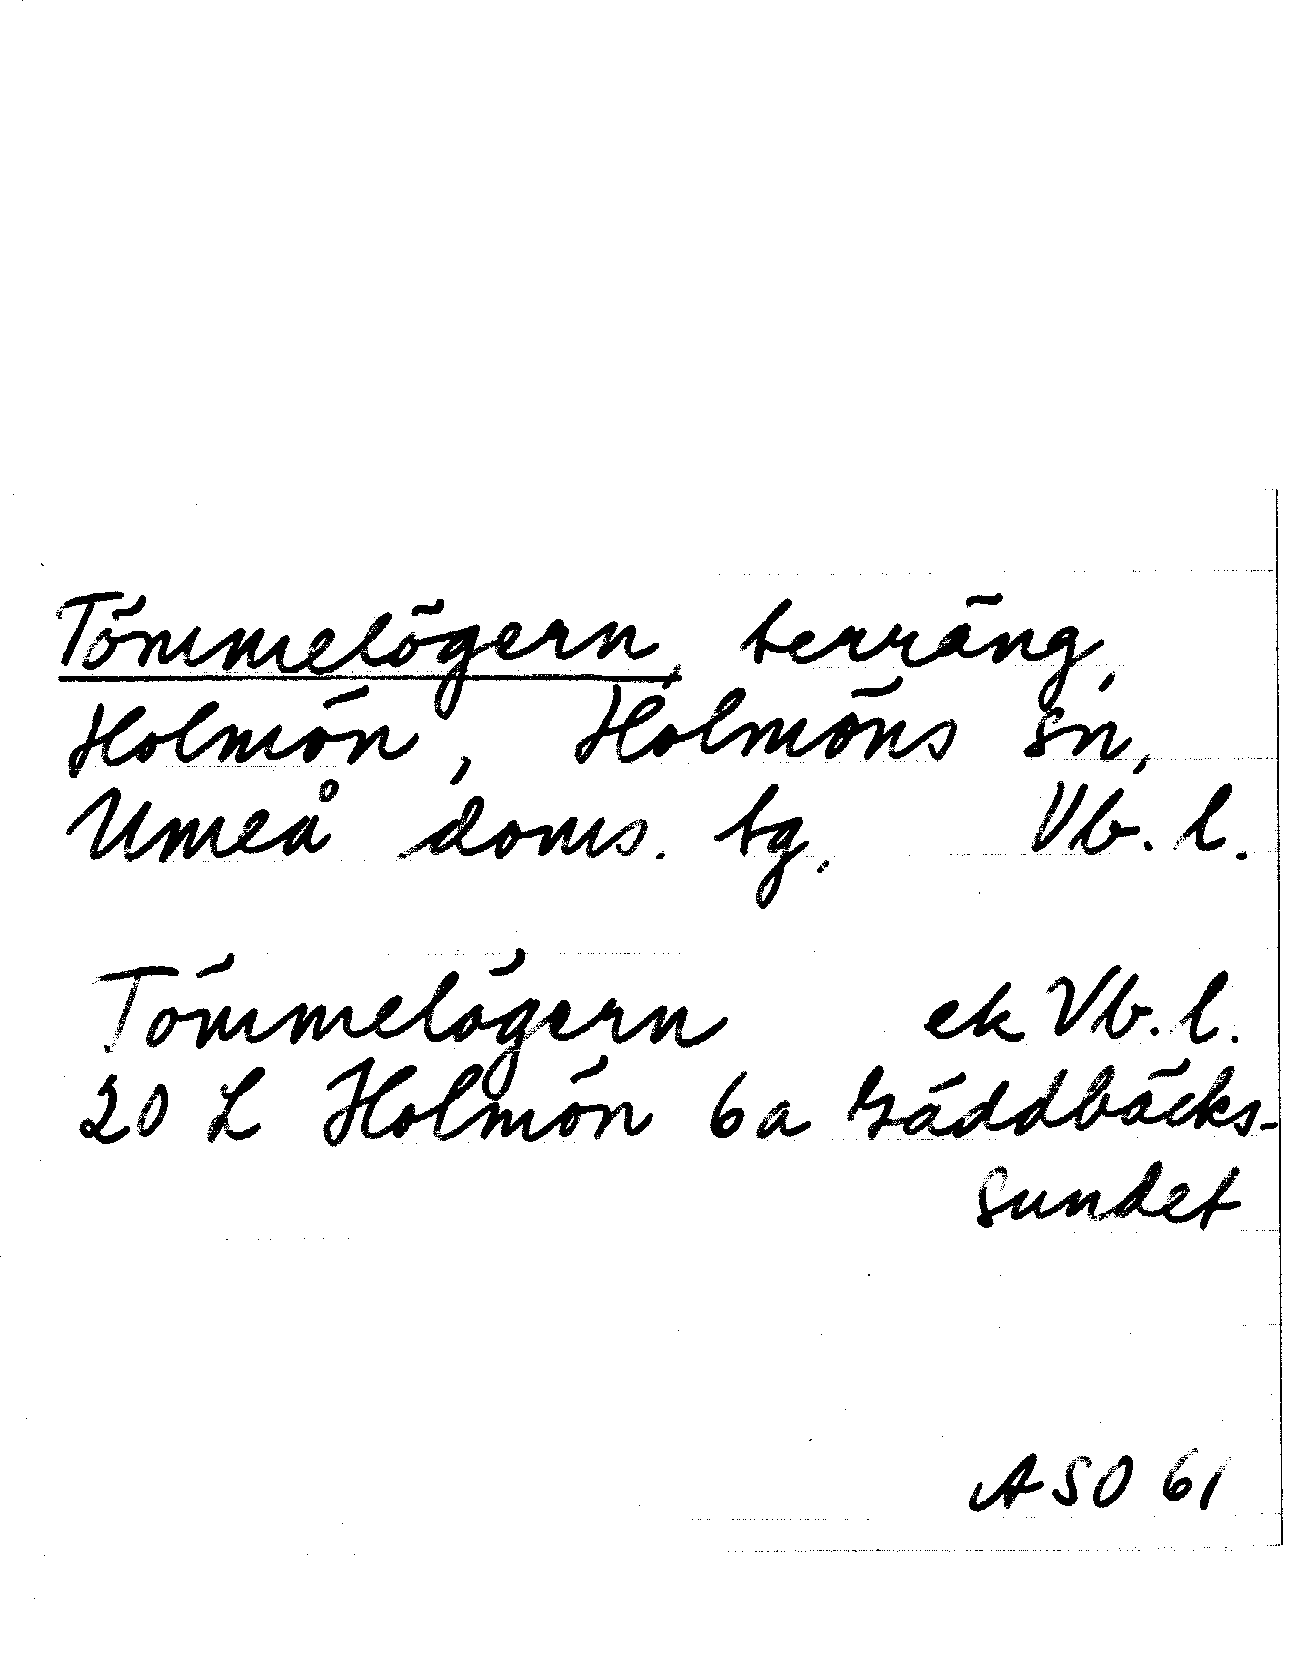 Tömmelögern, terräng,
Holmön, Holmöns sn,
Umeå doms. tg. Vb. l.
Tömmelögern ek Vb. l.
20 L Holmön 6a Gäddbäcks-
sundet
ASO 61